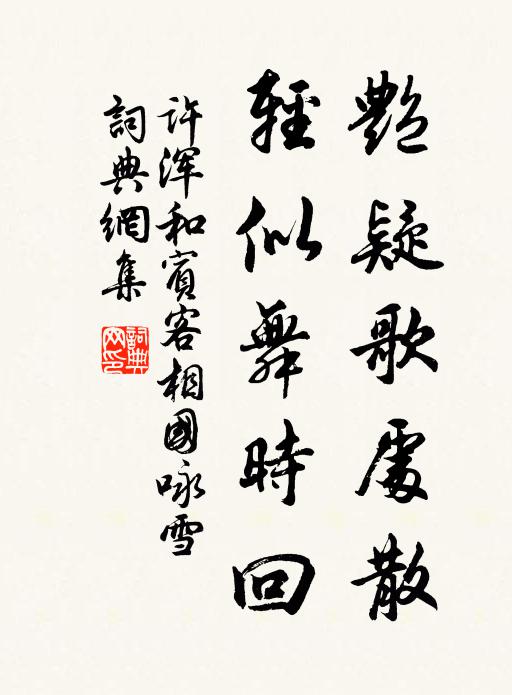 艷疑歌處散
輕似舞時回
许渾和賓客相國咏雪
詞典網集
詞典网印